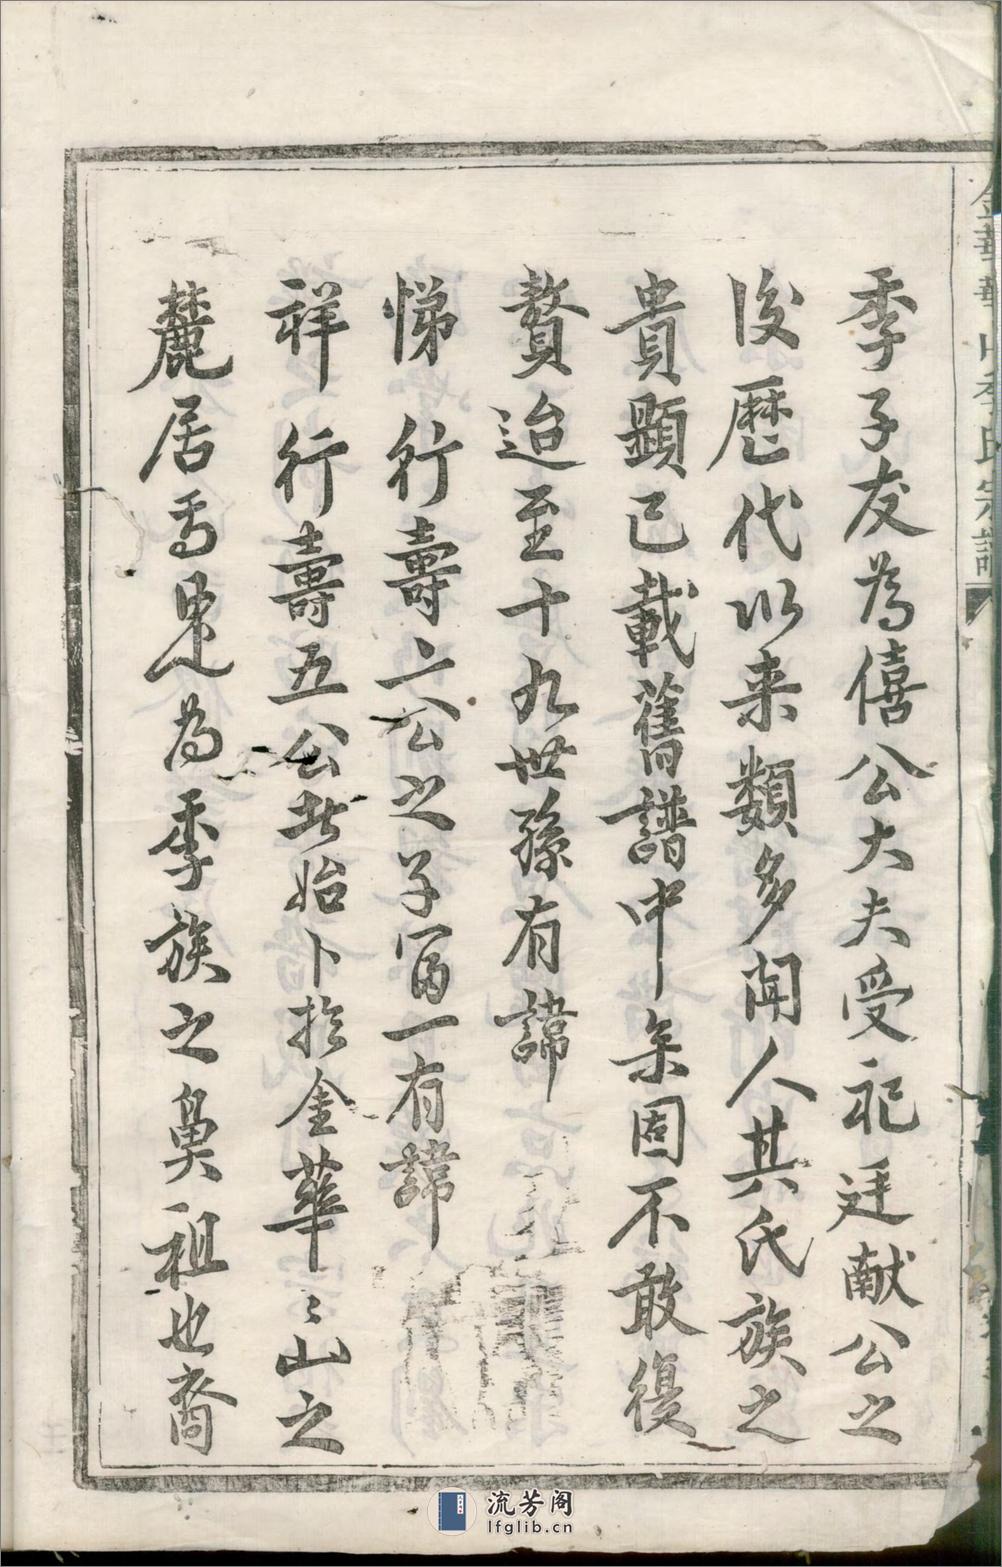 季子友為僖公大夫受祀廷献公之
後歷代以来類多聞人其氏族之
貴顕已載舊譜中矣固不敢復
贅迨至十九世孫有諱
悌行壽二公之子富一有諱
祥行壽五公者始卜於金華〻山之
麓居焉是為季族之鼻祖也裔
金華華山季氏宗譜
流芳阁
lfglib.cn